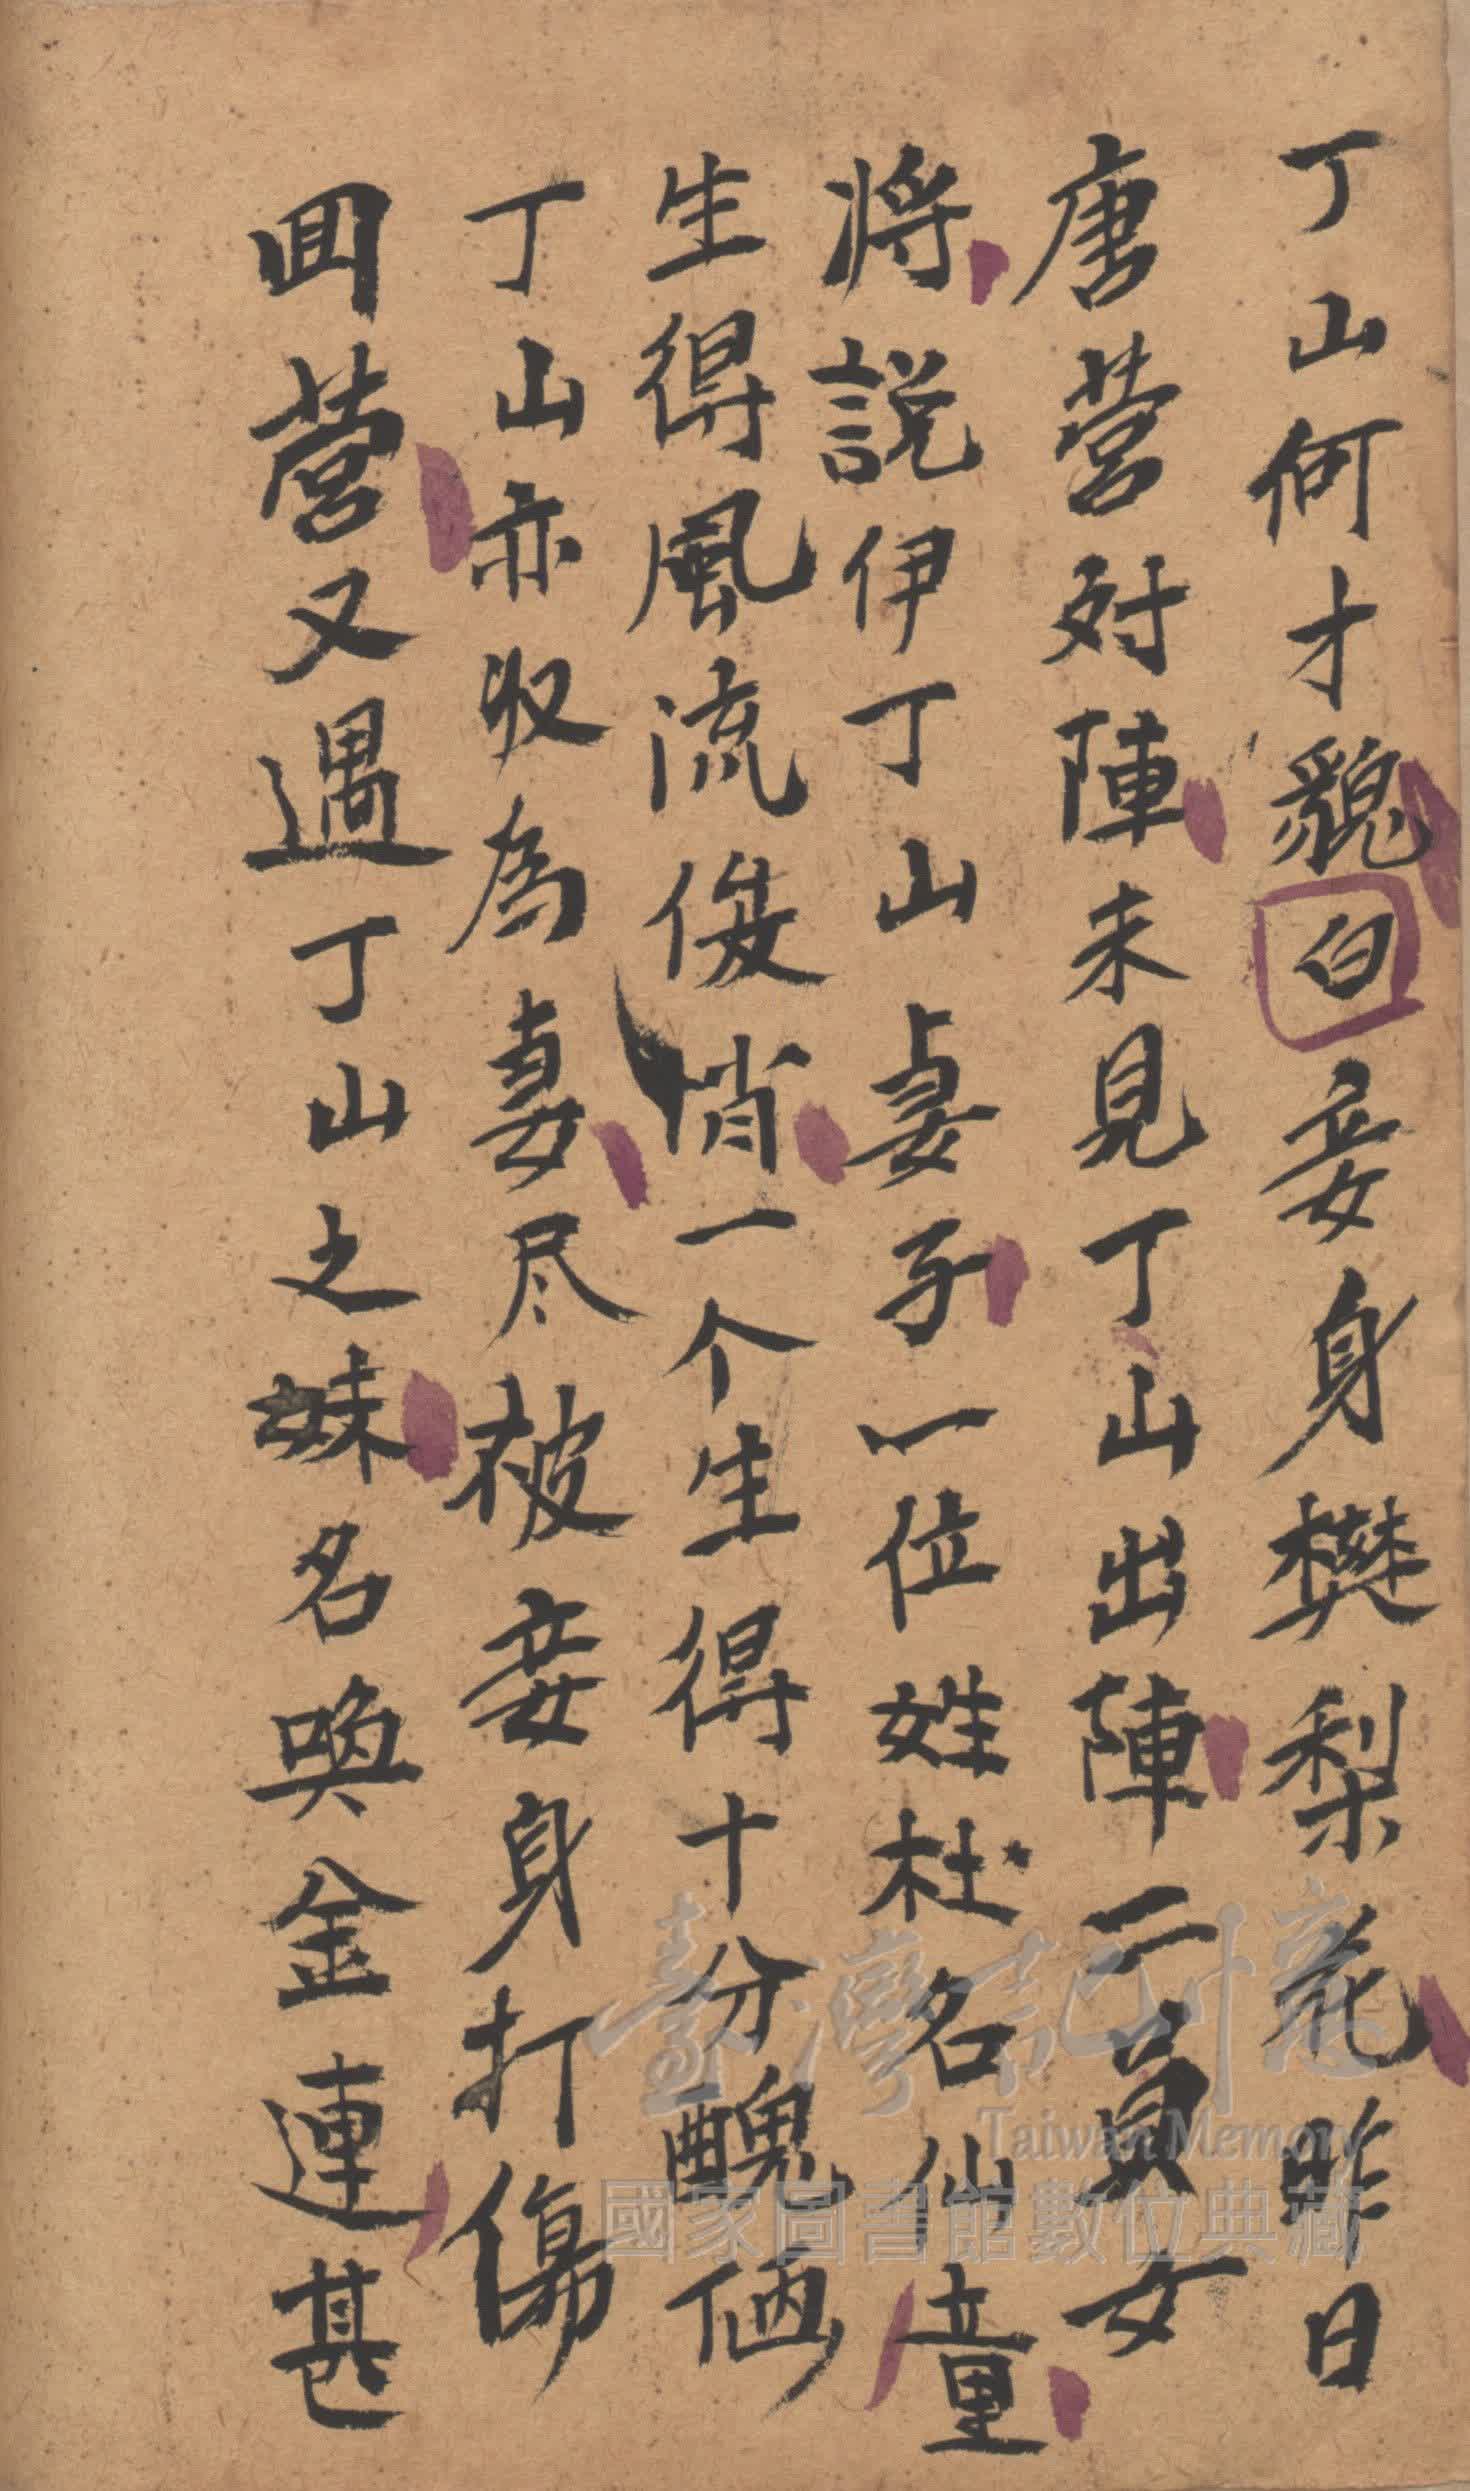 丁山何才貌白妾身樊梨花昨日
唐营对陣未見丁山出陣二員女
将說伊丁山妻子一位姓杜名仙童
生得風流俊悄一个生得十分醜陋
丁山亦收為妻尽被妾身打傷
回营又遇丁山之妹名喚金連甚
臺灣記憶
Taiwan Memory
國家圖書館數位典藏